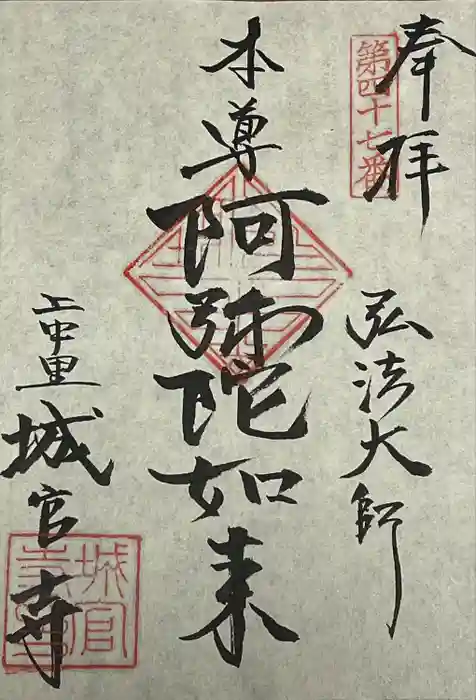 奉拝
第四十七番
弘法大師
本尊
阿弥陀如来
上中里
城官寺
城官寺